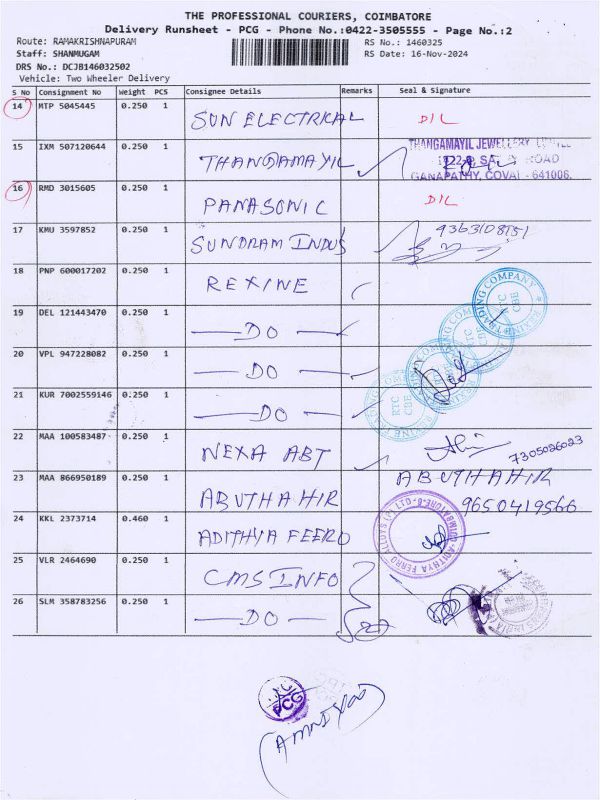 THE PROFESSIONAL COURIERS, COIMBATORE
Delivery Runsheet - PCG - Phone No.:0422-3505555 - Page No.:2
Route: RAMAKRISHNAPURAM RS No.: 1460325
Staff: SHANMUGAM RS Date: 16-Nov-2024
DRS No.: DCJB146032502
Vehicle: Two Wheeler Delivery
S No Consignment No Weight PCS Consignee Details Remarks Seal & Signature
14 MTP 5045445 0.250 1 SUN ELECTRICAL D/L
15 IXM 507120644 0.250 1 THANGAMAYIL THANGAMAYIL JEWELLERY
ROAD
GANAPATHY, COVAI - 641006.
16 RMD 3015605 0.250 1 PANASONIC D/L
17 KMU 3597852 0.250 1 SUNDRAM INDUS 9363108151
18 PNP 600017202 0.250 1 REXINE
19 DEL 121443470 0.250 1 DO
20 VPL 947228082 0.250 1 DO
21 KUR 7002559146 0.250 1 DO
REXINE TRADING COMPANY RTC CBE
22 MAA 100583487 0.250 1 NEXA ABT 7305026023
23 MAA 866950189 0.250 1 ABUTHAHIR ABUTHAHIR
9650419566
24 KKL 2373714 0.460 1 ADITHYA FEERO ADITHYA FERRO ALLOYS (P) LTD
25 VLR 2464690 0.250 1 CMS INFO
26 SLM 358783256 0.250 1 DO
PCG